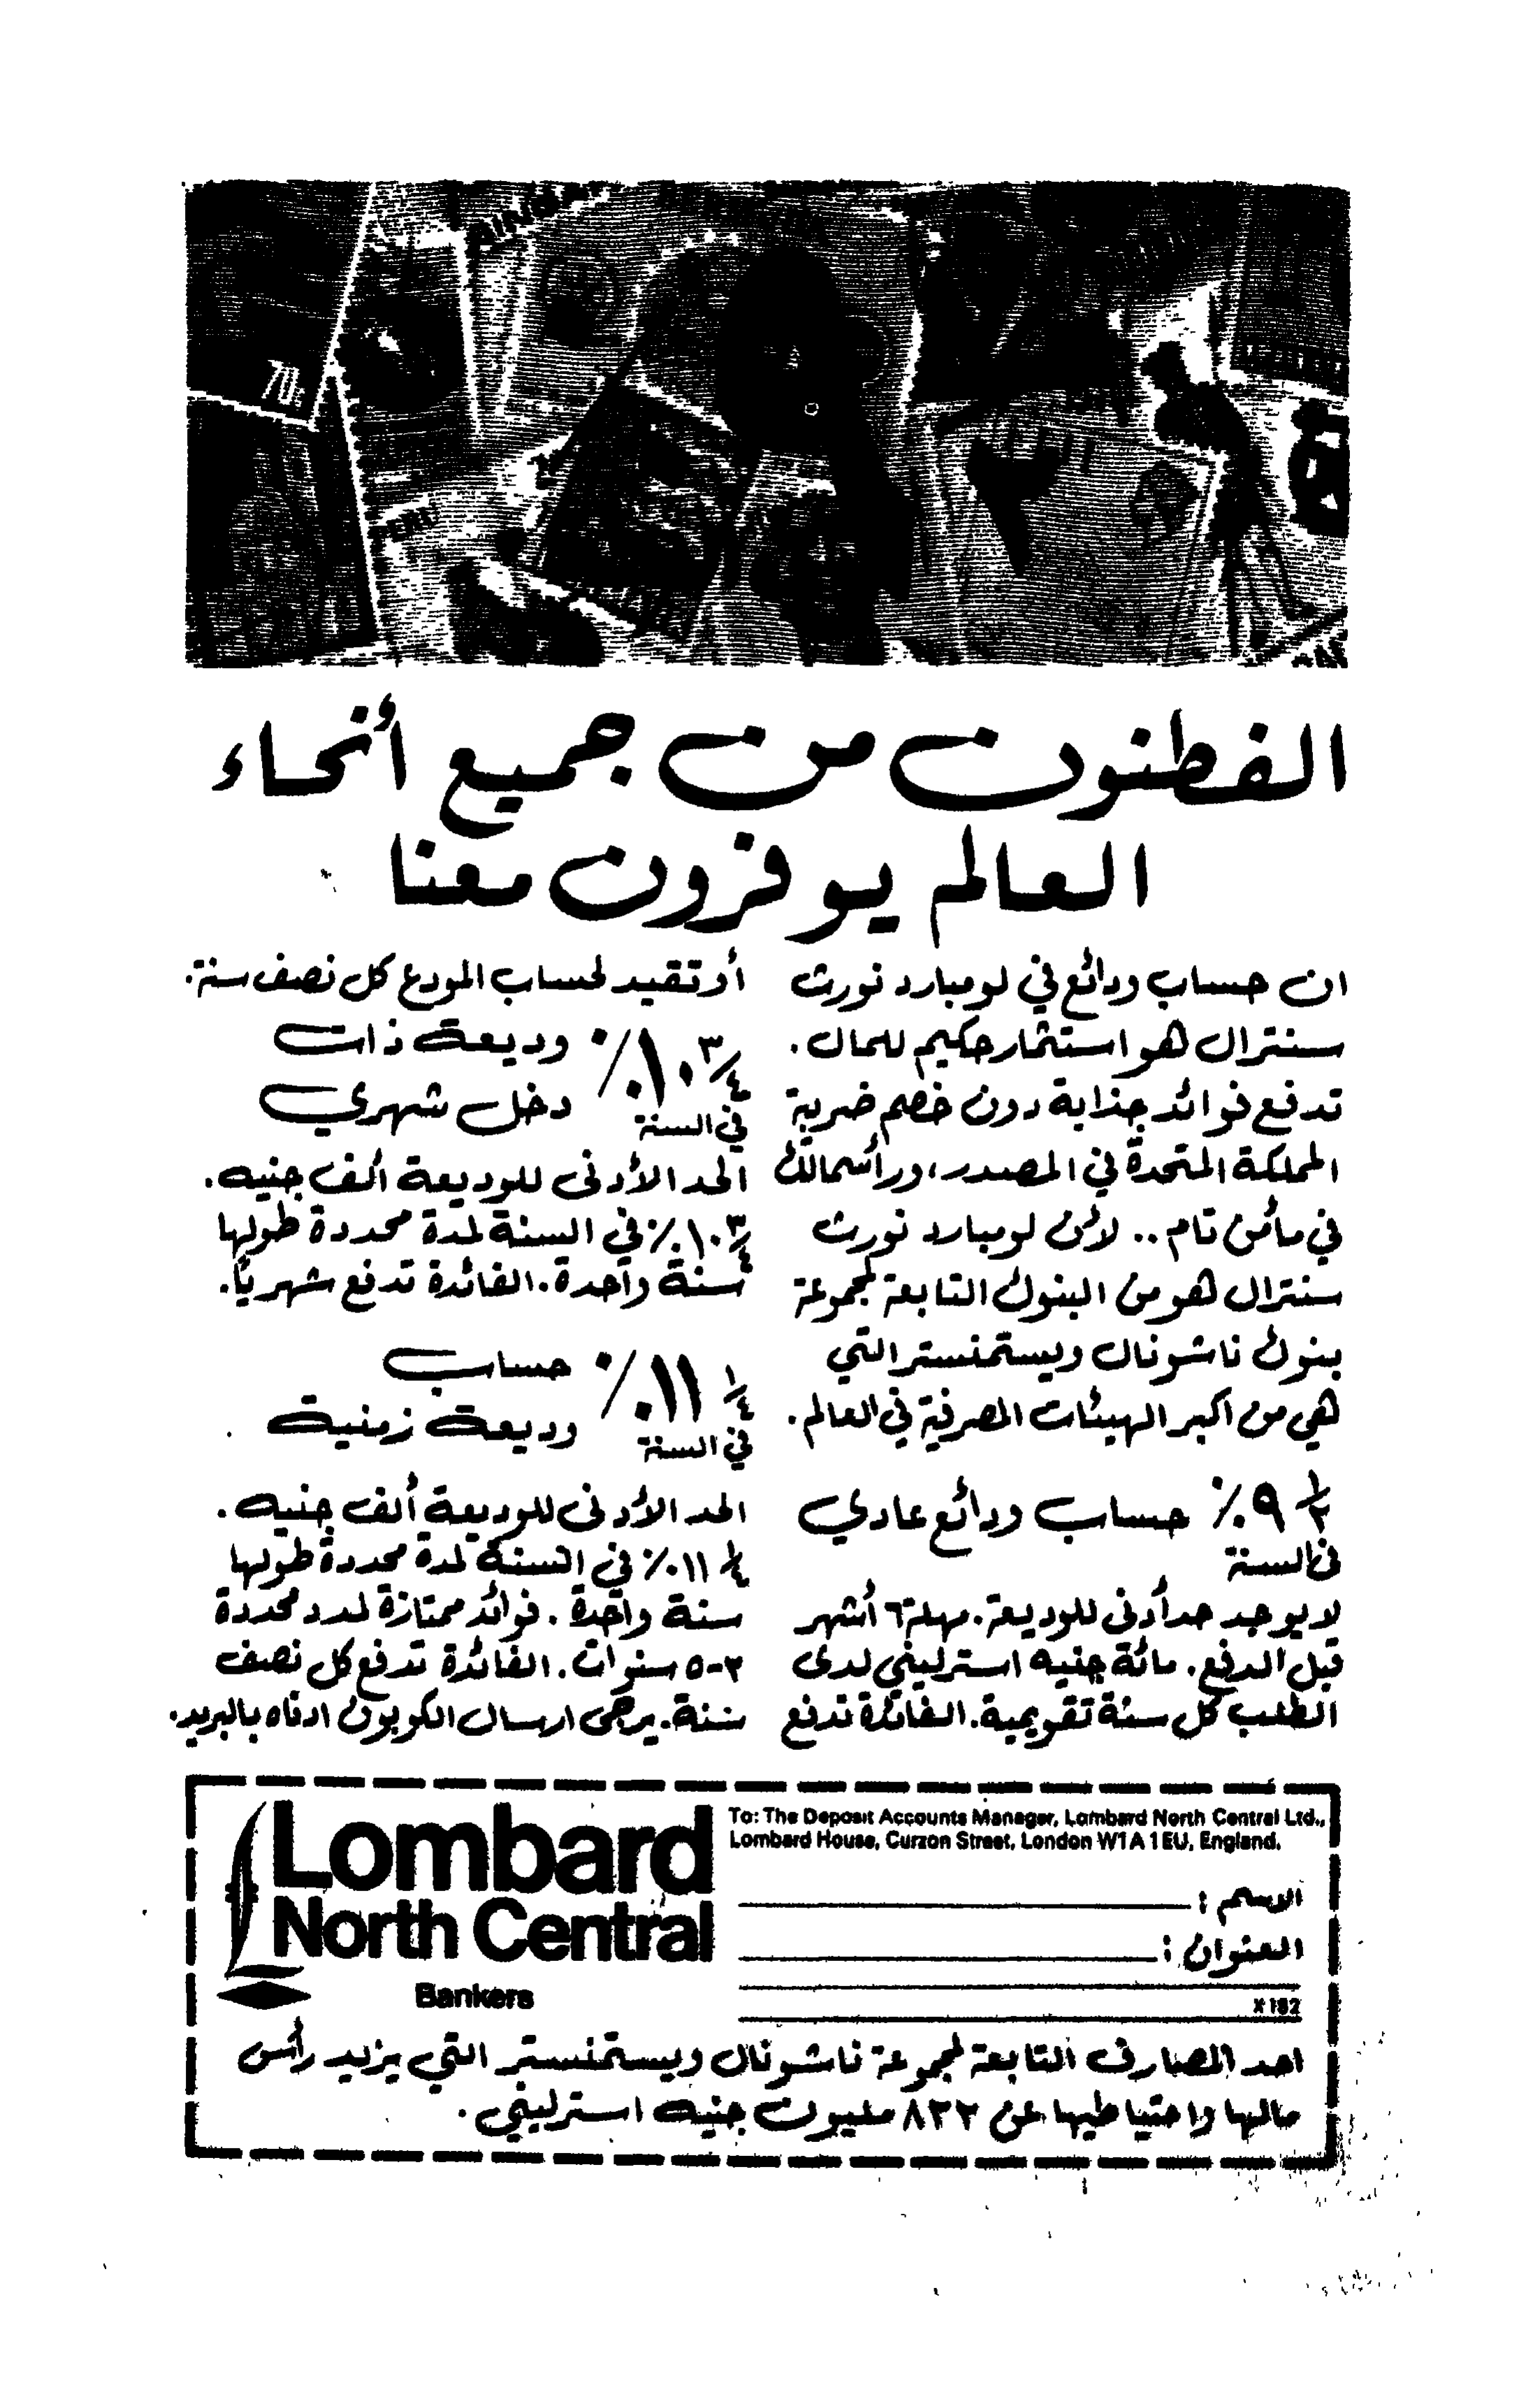 الفطنون من جميع أنحاء
العالم يوفرون معنا
ان حساب ودائع في لومبارد نورث
سنترال هو استثمار حكيم للمال.
تدفع فوائد جذابة دون خصم ضريبة
المملكة المتحدة في المصدر، ورأسمالك
في مأمن تام .. لأن لومبارد نورث
سنترال هو من البنوك التابعة لمجموعة
بنوك ناشونال ويستمنستر التي
هي من اكبر الهيئات المصرفية في العالم.
٩ ١/٢ ٪ حساب ودائع عادي
في السنة
لا يوجد حد أدنى للوديعة. مهلة ٦ أشهر
قبل الدفع. مائة جنيه استرليني لدى
الطلب كل سنة تقويمية. الفائدة تدفع
أو تقيد لحساب المودع كل نصف سنة.
١٠ ٣/٤ ٪ وديعة ذات
في السنة دخل شهري
الحد الأدنى للوديعة ألف جنيه.
١٠ ٣/٤ ٪ في السنة لمدة محددة طولها
سنة واحدة. الفائدة تدفع شهرياً.
١١ ١/٤ ٪ حساب
في السنة وديعة زمنية
الحد الأدنى للوديعة ألف جنيه.
١١ ١/٤ ٪ في السنة لمدة محددة طولها
سنة واحدة. فوائد ممتازة لمدد محددة
٢-٥ سنوات. الفائدة تدفع كل نصف
سنة. يرجى ارسال الكوبون ادناه بالبريد.
Lombard
North Central
Bankers
To: The Deposit Accounts Manager, Lombard North Central Ltd.,
Lombard House, Curzon Street, London W1A 1EU, England.
الاسم :
العنوان :
X182
احد المصارف التابعة لمجموعة ناشونال ويستمنستر التي يزيد رأس
مالها واحتياطيها عن ٨٢٢ مليون جنيه استرليني.